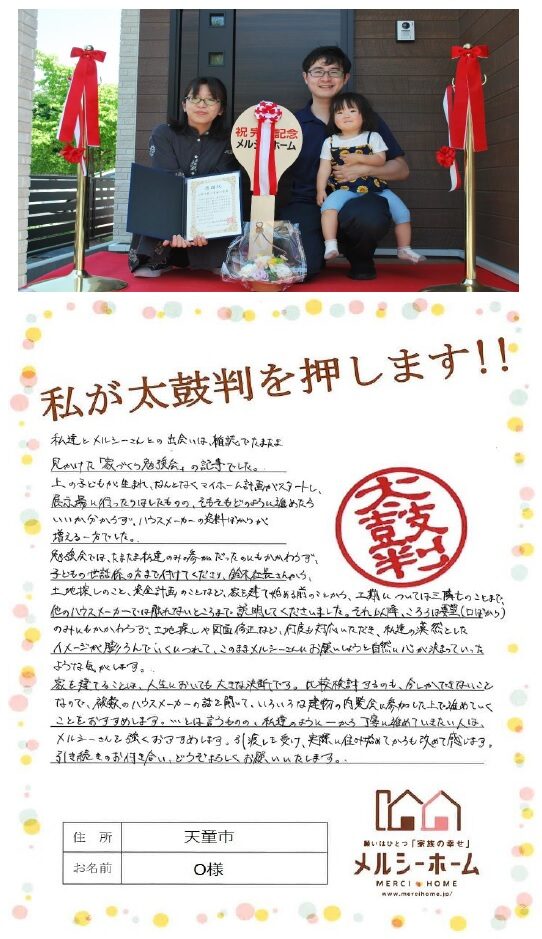 祝 完 記念
メルシーホーム
私が太鼓判を押します!!
私達とメルシーさんとの出会いは、雑誌でたまたま
見かけた「家づくり勉強会」の記事でした。
上の子どもが生まれ、なんとなくマイホーム計画がスタートし、
展示場に行ったりはしたものの、そもそもどのように進めたら
いいか分からず、ハウスメーカーの資料ばかりが
増える一方でした。
勉強会では、たまたま私達のみの参加だったのにもかかわらず、
子どもの世話係の方まで付けてくださり、鈴木社長さんから、
土地探しのこと、資金計画のことなど、家を建て始める前のことから、工期については三隅さんのことまで、
他のハウスメーカーでは聞れないところまで説明してくださいました。それ以降、こちらは要望(口ばかり)
のみにもかかわらず、土地探しや図面修正など、何度も対応いただき、私達の漠然とした
イメージが膨らんでいくにつれて、このままメルシーさんにお願いしようと自然に心が決まっていった
ような気がします。
家を建てることは、人生においても大きな決断です。比較検討するのも、今しかできないこと
なので、複数のハウスメーカーの話を聞いて、いろいろな建物の内覧会に参加した上で進めていく
ことをおすすめします。…とは言うものの、私達のように一から丁寧に進めていきたい人は、
メルシーさんを強くおすすめします。引渡しを受け、実際に住み始めてからも改めて感じます。
引き続きのお付き合い、どうぞよろしくお願いいたします。
太鼓判
住 所 天童市
お名前 O様
願いはひとつ「家族の幸せ」
メルシーホーム
MERCI HOME
www.mercihome.jp/